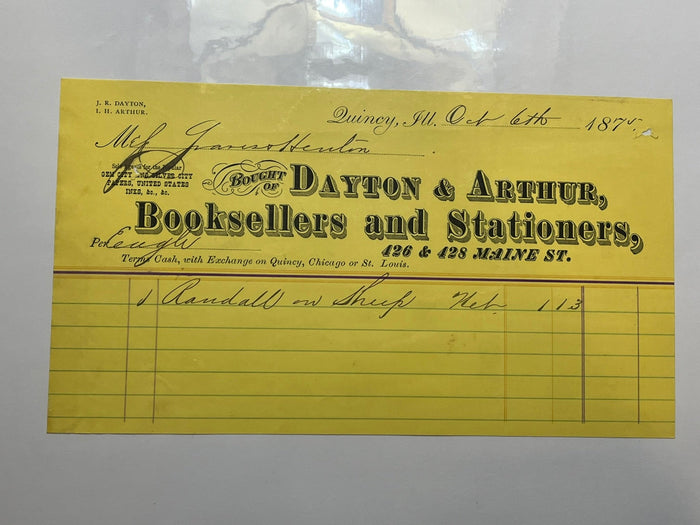 J. R. DAYTON,
I. H. ARTHUR.
Quincy, Ill. Oct 6th 187
Graves & Henton
Sole Agents for the Popular
GEM CITY AND SILVER CITY
PAPERS, UNITED STATES
INKS, &c., &c.
BOUGHT OF DAYTON & ARTHUR,
Booksellers and Stationers,
Per
426 & 428 MAINE ST.
Terms Cash, with Exchange on Quincy, Chicago or St. Louis.
1 Randall on Sheep Net 1 13